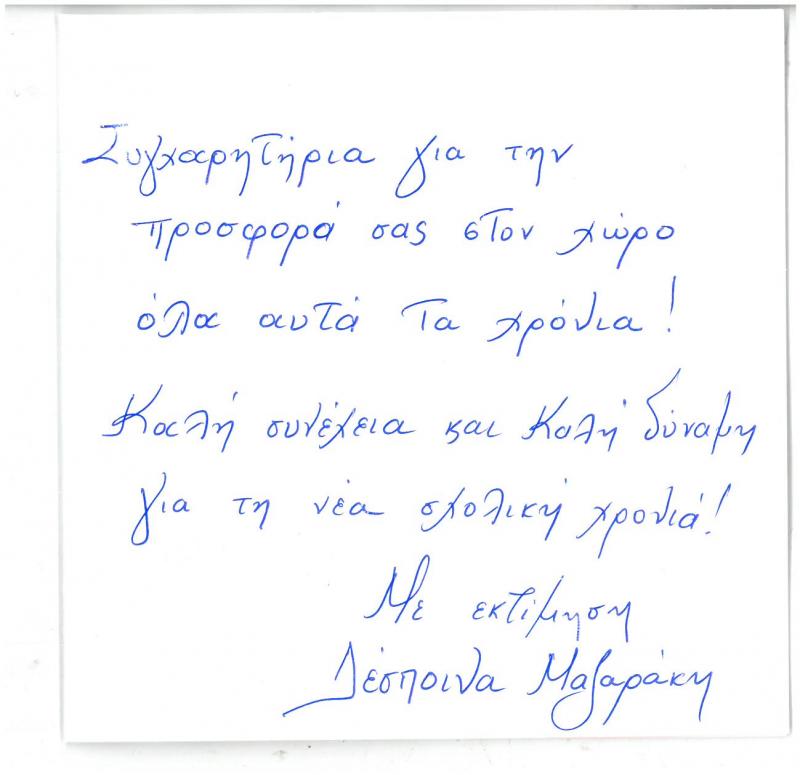 Συγχαρητήρια για την
προσφορά σας στον χώρο
όλα αυτά τα χρόνια!
Καλή συνέχεια και Καλή δύναμη
για τη νέα σχολική χρονιά!
Με εκτίμηση
Δέσποινα Μαζαράκη